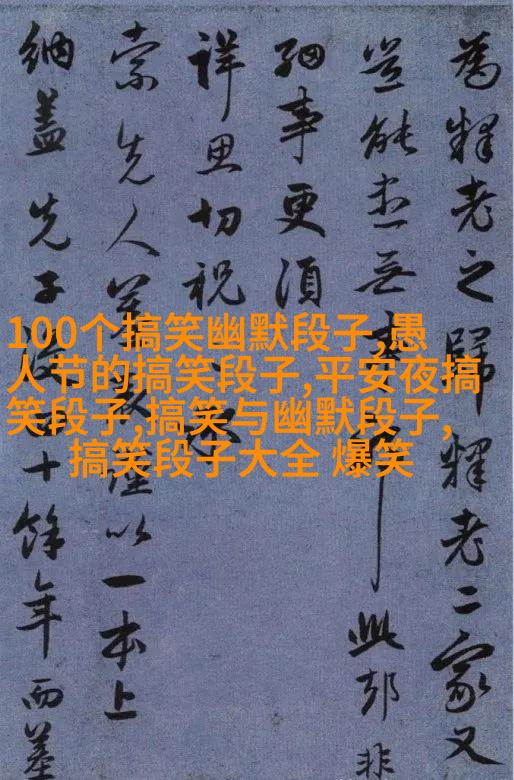 100个搞笑幽默段子,愚
人节的搞笑段子,平安夜搞
笑段子,搞笑与幽默段子,
搞笑段子大全 爆笑
為釋老之歸釋老二家又
豈能無此却非
細事更須
詳思切祝
索先人以一本上
納蓋先子十餘年而墓